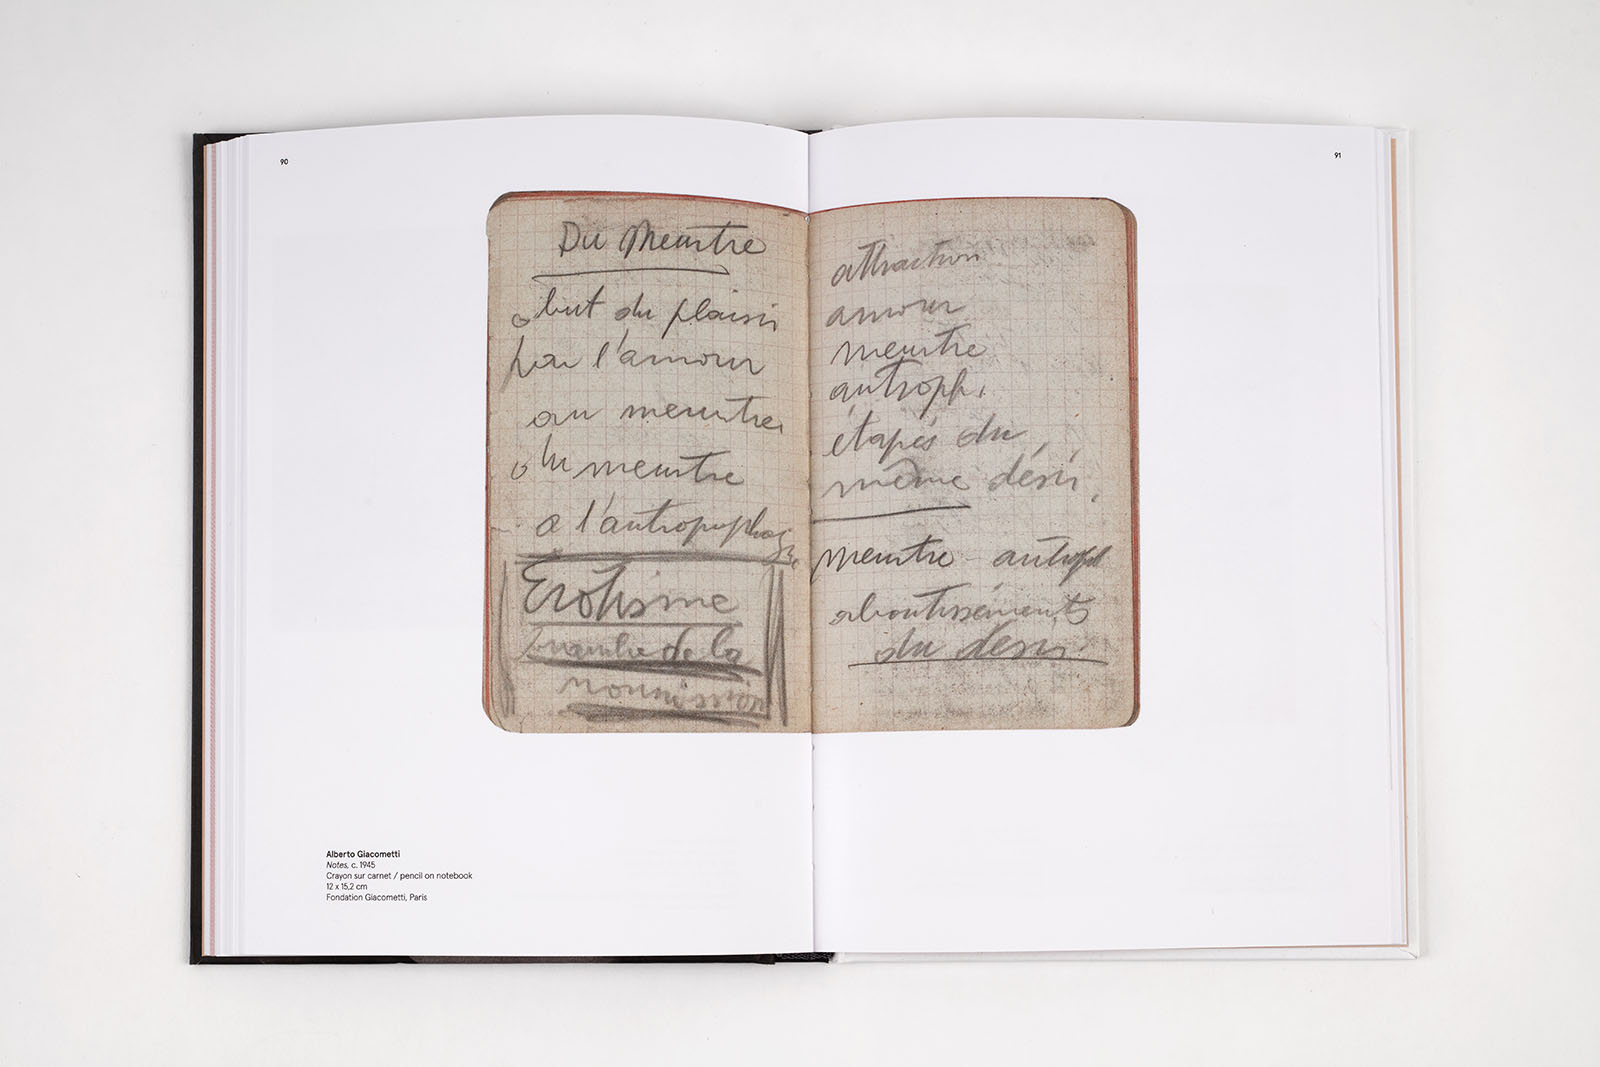 90
Du Meurtre
but du plaisir
par l'amour
au meurtre
du meurtre
a l'antropophagie
Erotisme
de la
Alberto Giacometti
Notes, c. 1945
Crayon sur carnet / pencil on notebook
12 x 15,2 cm
Fondation Giacometti, Paris
91
attraction
amour
meurtre
antroph.
étapes du
même désir.
meurtre - antroph
aboutissements
du desir.